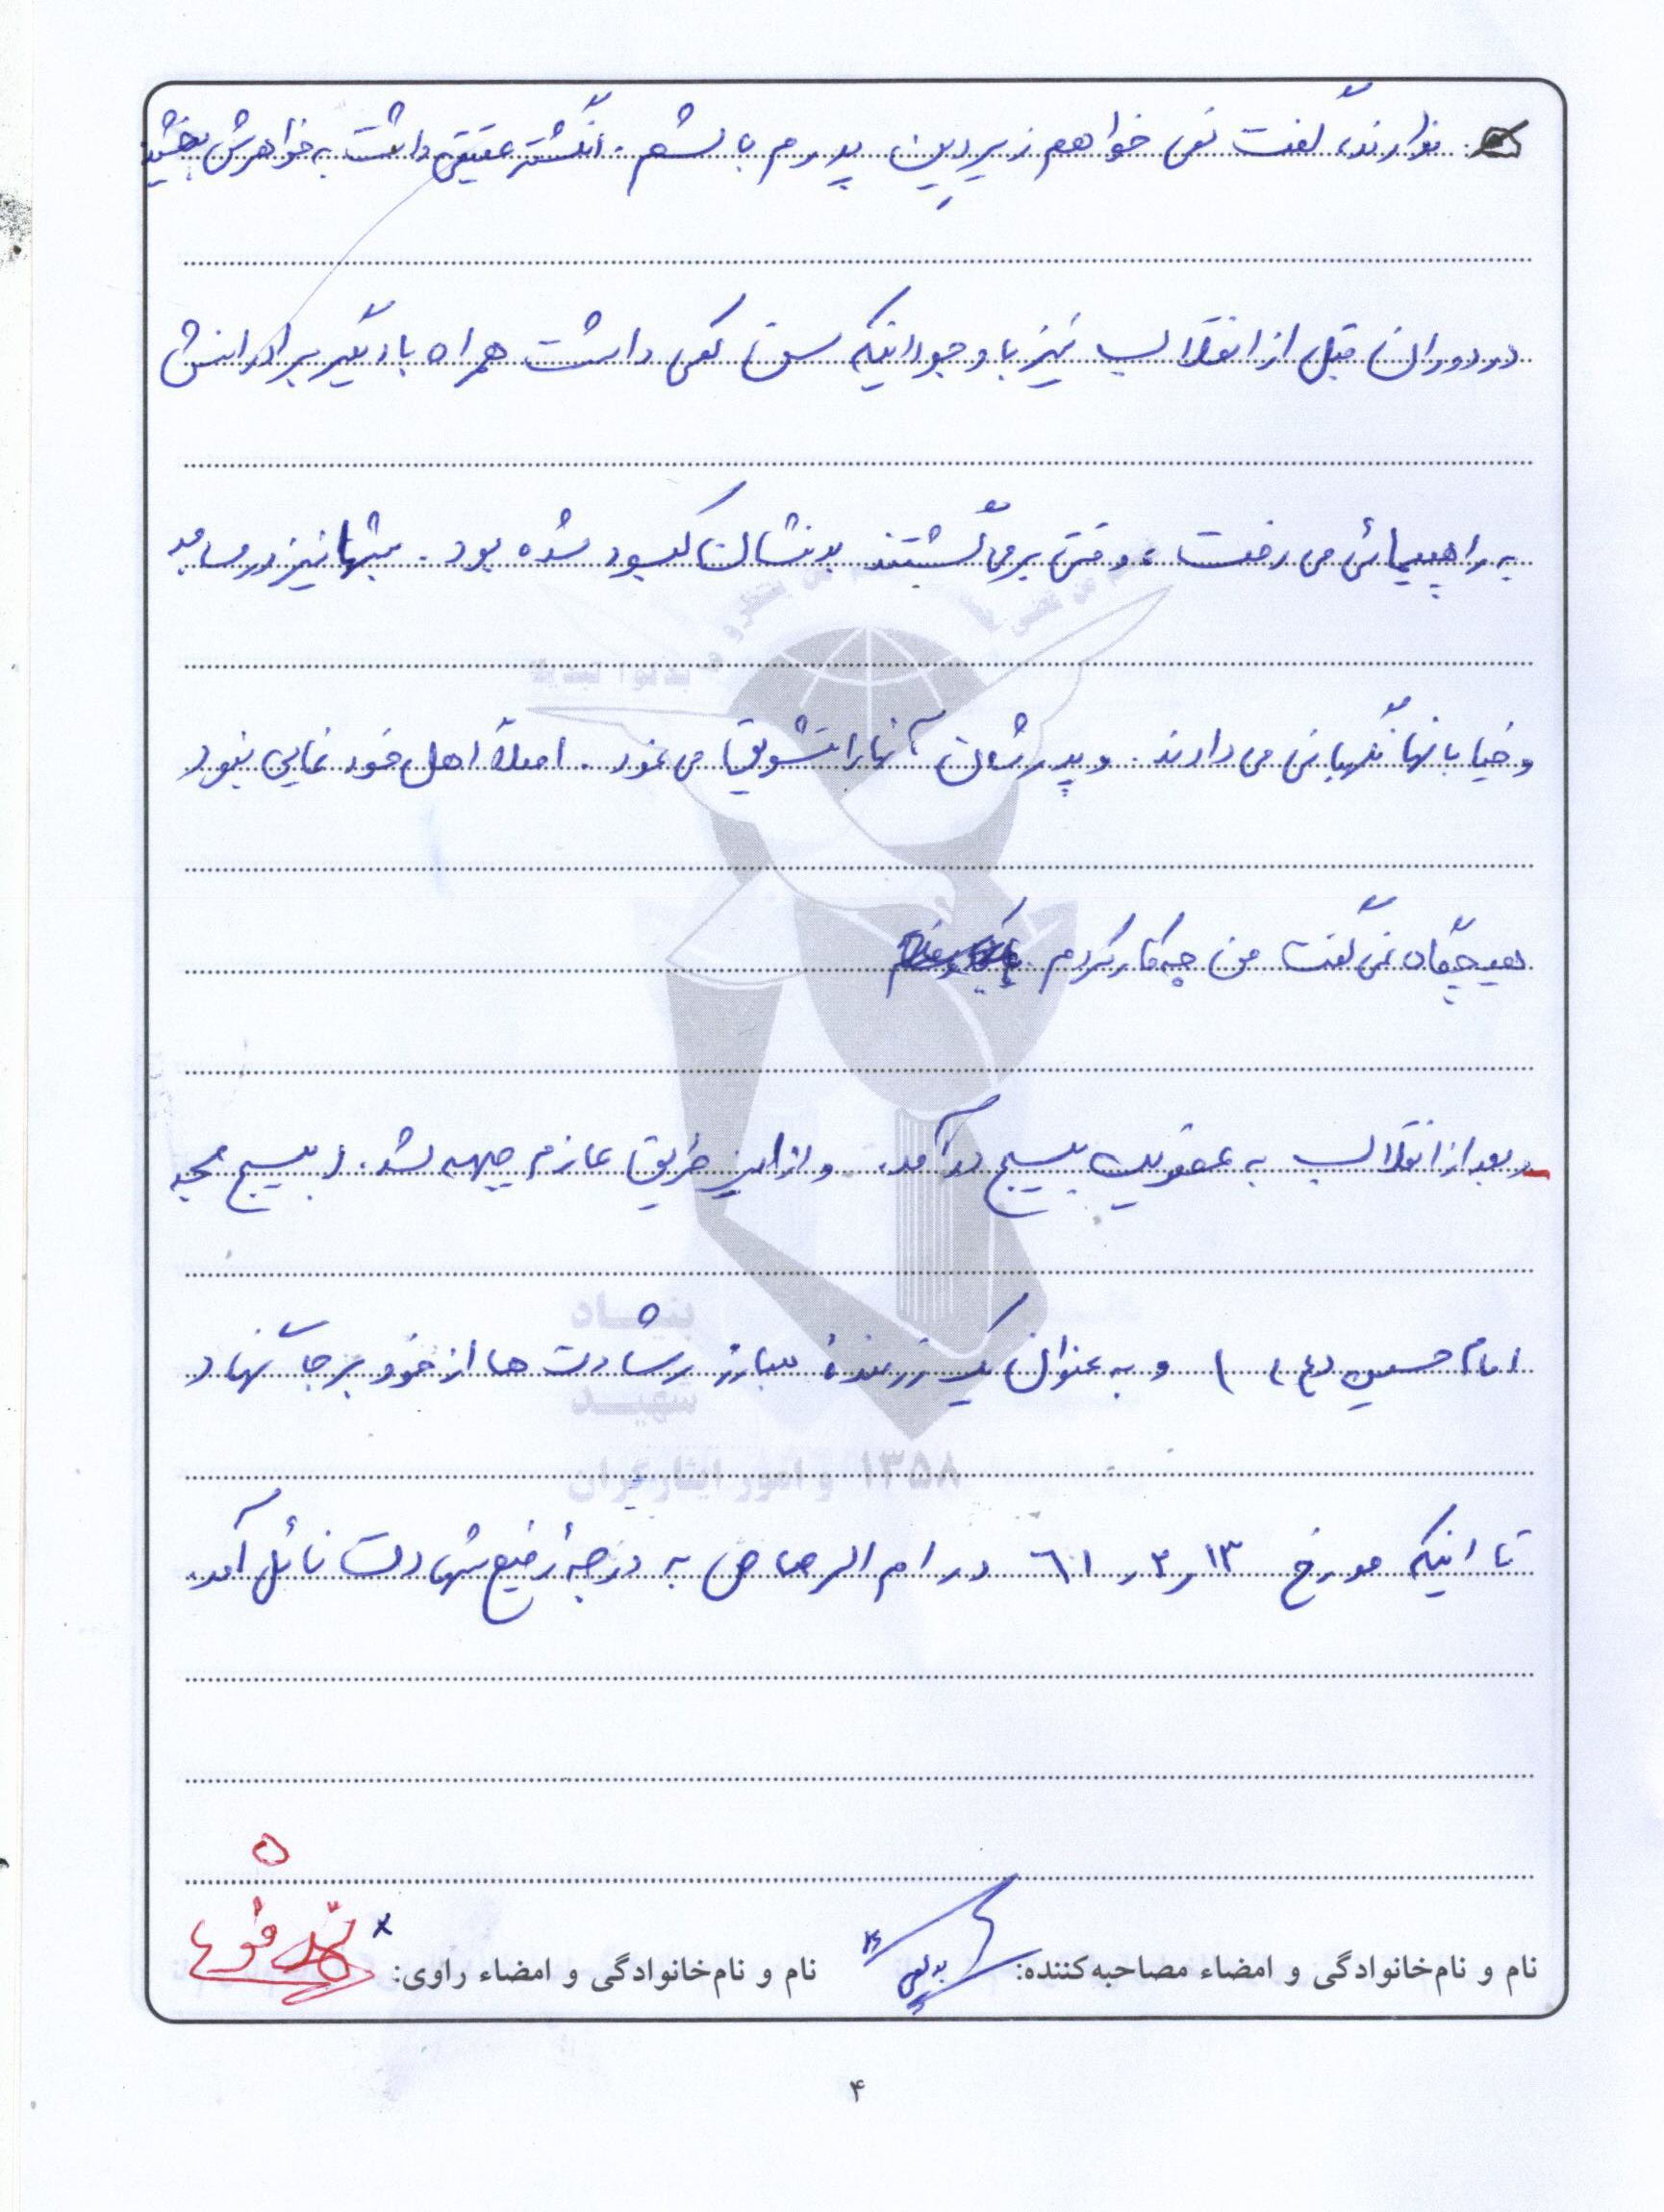 ندارند، گفت نمی خواهم زیر دین پدرم باشم. انگشتر عقیقی داشت به خواهرش بخشید
در دوران قبل از انقلاب نیز با وجود اینکه سن کمی داشت همراه با دیگر برادرانش
به راهپیمائی می رفت، وقتی برمی گشتند بدنشان کبود شده بود. شبها نیز در مساجد
و خیابانها نگهبانی می دادند. و پدرشان آنها را تشویق می نمود. اصلاً اهل خود نمایی نبود
هیچگاه نمی گفت من چه کار کردم
بعد از انقلاب به عضویت بسیج در آمد. و از این طریق عازم جبهه شد. (بسیج مسجد
امام حسین (ع)) و به عنوان یک رزمندهٔ مبارز رشادت ها از خود برجا نهاد
تا اینکه مورخ ۶۱٫۳٫۱۳ در ام الرصاص به درجهٔ رفیع شهادت نائل آمد.
بنیاد
شهید
و امور ایثارگران ۱۳۵۸
نام و نام‌خانوادگی و امضاء مصاحبه‌کننده: نام و نام‌خانوادگی و امضاء راوی:
۴